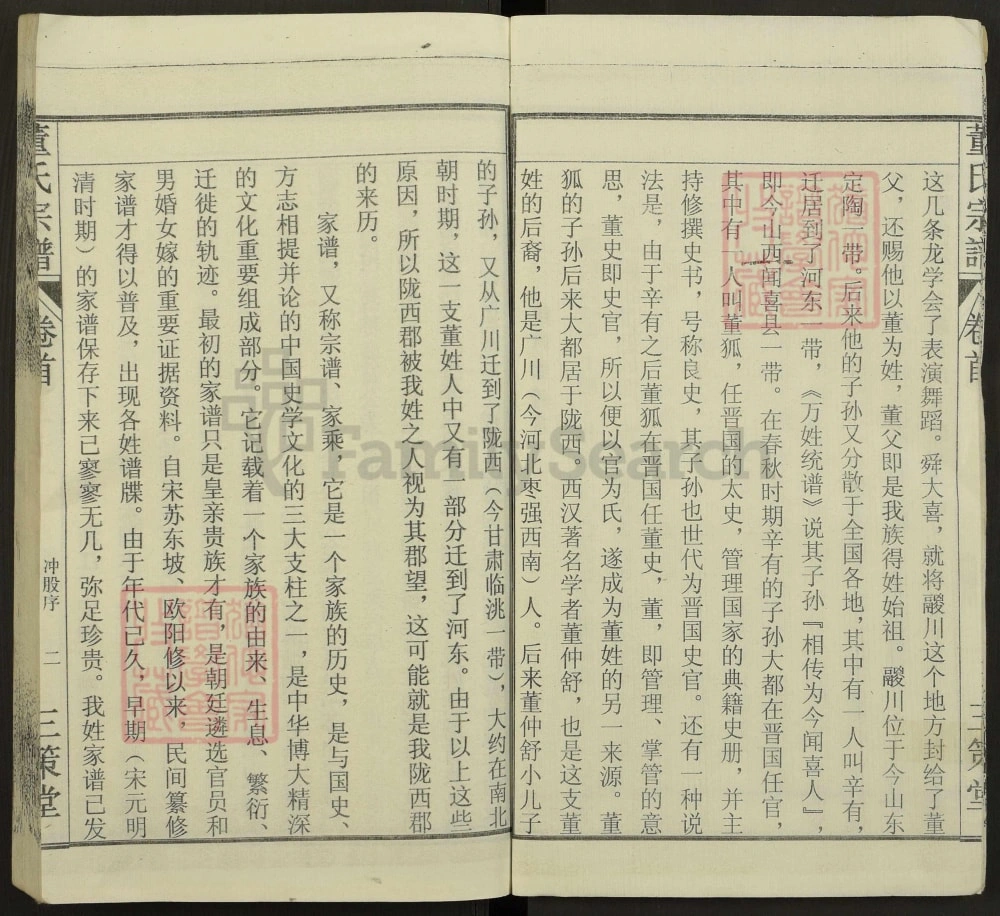 董氏宗谱
卷首
三策堂
这几条龙学会了表演舞蹈。舜大喜，就将鬷川这个地方封给了董
父，还赐他以董为姓，董父即是我族得姓始祖。鬷川位于今山东
定陶一带。后来他的子孙又分散于全国各地，其中有一人叫辛有，
迁居到了河东一带，《万姓统谱》说其子孙『相传为今闻喜人』，
即今山西闻喜县一带。在春秋时期辛有的子孙大都在晋国任官，
其中有一人叫董狐，任晋国的太史，管理国家的典籍史册，并主
持修撰史书，号称良史，其子孙也世代为晋国史官。还有一种说
法是，由于辛有之后董狐在晋国任董史，董，即管理、掌管的意
思，董史即史官，所以便以官为氏，遂成为董姓的另一来源。董
狐的子孙后来大都居于陇西。西汉著名学者董仲舒，也是这支董
姓的后裔，他是广川（今河北枣强西南）人。后来董仲舒小儿子
的子孙，又从广川迁到了陇西（今甘肃临洮一带），大约在南北
朝时期，这一支董姓人中又有一部分迁到了河东。由于以上这些
原因，所以陇西郡被我姓之人视为其郡望，这可能就是我陇西郡
的来历。
家谱，又称宗谱、家乘，它是一个家族的历史，是与国史、
方志相提并论的中国史学文化的三大支柱之一，是中华博大精深
的文化重要组成部分。它记载着一个家族的由来、生息、繁衍、
迁徙的轨迹。最初的家谱只是皇亲贵族才有，是朝廷遴选官员和
男婚女嫁的重要证据资料。自宋苏东坡、欧阳修以来，民间纂修
家谱才得以普及，出现各姓谱牒。由于年代已久，早期（宋元明
清时期）的家谱保存下来已寥寥无几，弥足珍贵。我姓家谱已发
董氏宗谱
卷首
冲股序
二
三策堂
FamilySearch